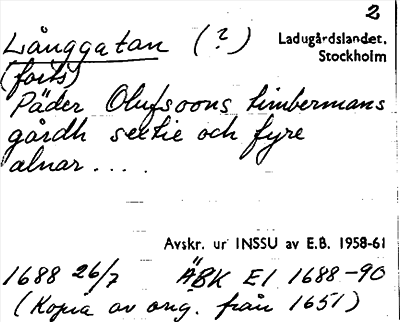 2
Långgatan (?)
Ladugårdslandet,
Stockholm
(forts)
Päder Olufsoons timbermans
gårdh sextie och fyre
alnar.....
Avskr. ur INSSU av E.B. 1958-61
1688 26/7 ÄBK E1 1688-90
(Kopia av orig. från 1651)